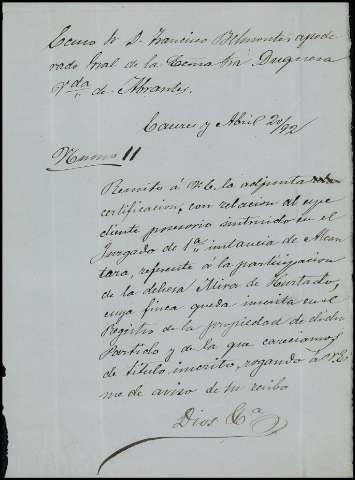 Excmo Sr D. Francisco Belmonte, apode
rado Gral de la Excma Sra Duquesa
Vda de Abrantes.
Caceres y Abril 20/92
Numo 11
Remito á V.E. la adjunta
certificacion, con relacion al espe
diente posesorio instruido en el
Juzgado de 1a instancia de Alcan
tara, referente á la participacion
de la dehesa Mira de Hurtado,
cuya finca queda inscrita en el
Registro de la propiedad de dicho
Partido y de la que careciamos
de titulo inscrito, rogando á V.E.
me de aviso de su recibo
Dios &a